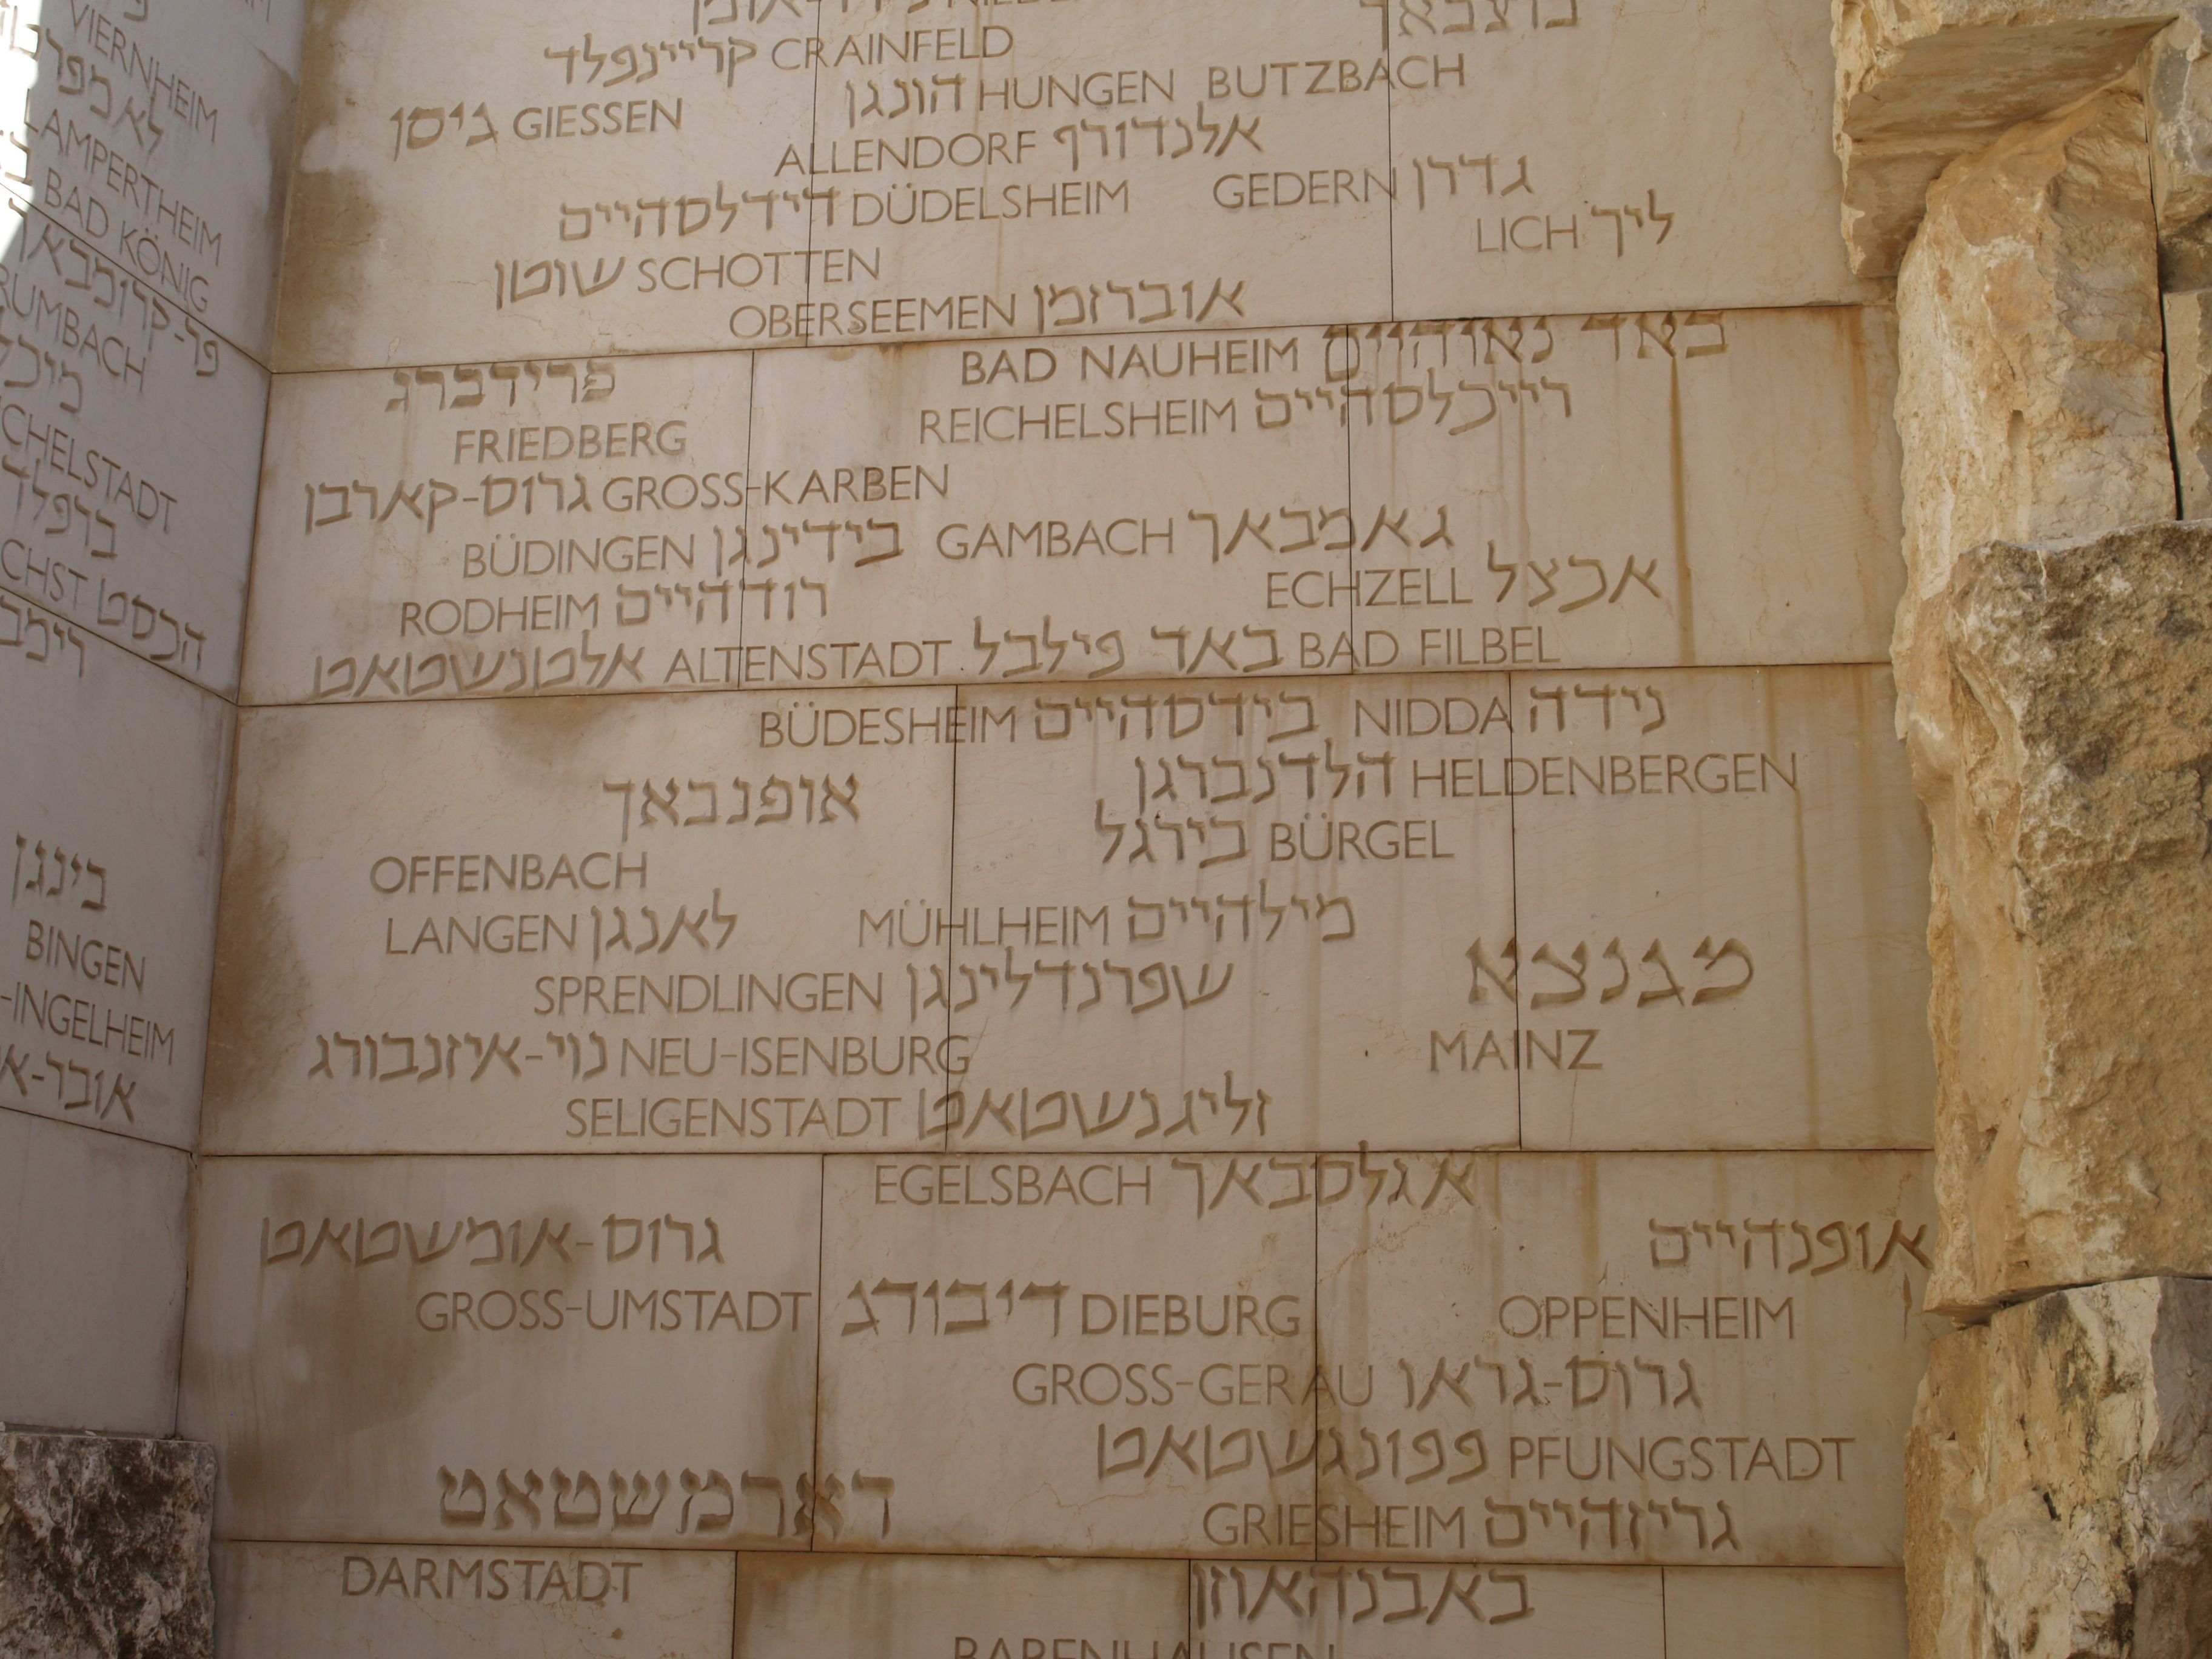 VIERNHEIM
לאמפר
LAMPERTHEIM
BAD KÖNIG
פר-קרומבאך
RUMBACH
מיכל
CHELSTADT
ברפלד
CHST הכסט
רימב
בינגן
BINGEN
-INGELHEIM
אובר-א
בוצבאך
קריינפלד CRAINFELD
הונגן HUNGEN BUTZBACH
גיסן GIESSEN
ALLENDORF אלנדורף
דידלסהיים DÜDELSHEIM GEDERN גדרן
LICH ליך
שוטן SCHOTTEN
OBERSEEMEN אוברזמן
פרידברג BAD NAUHEIM באד נאוהיים
FRIEDBERG REICHELSHEIM רייכלסהיים
גרוס-קארבן GROSS-KARBEN
BÜDINGEN בידינגן GAMBACH גאמבאך
RODHEIM רודהיים ECHZELL אכצל
אלטנשטאט ALTENSTADT באד פילבל BAD FILBEL
BÜDESHEIM בידסהיים NIDDA נידה
אופנבאך הלדנברגן HELDENBERGEN
OFFENBACH בירגל BÜRGEL
LANGEN לאנגן MÜHLHEIM מילהיים
SPRENDLINGEN שפרנדלינגן מגנצא
נוי-איזנבורג NEU-ISENBURG MAINZ
SELIGENSTADT זליגנשטאט
EGELSBACH אגלסבאך
גרוס-אומשטאט אופנהיים
GROSS-UMSTADT דיבורג DIEBURG OPPENHEIM
GROSS-GERAU גרוס-גראו
פפונגשטאט PFUNGSTADT
דארמשטאט GRIESHEIM גריזהיים
DARMSTADT באבנהאוזן
BABENHAUSEN